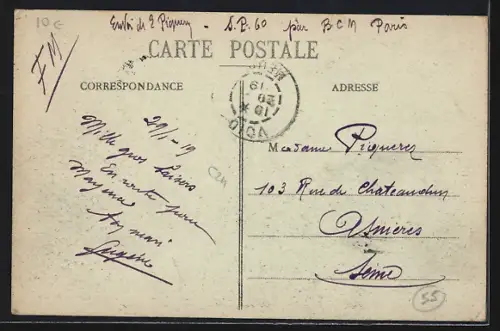 10€
Envoi de E Piquerez - S.P. 60 par B C M Paris
FM
CARTE POSTALE
CORRESPONDANCE
ADRESSE
29/1-19
Mille gros baisers
En route pour
Mayence
ton mari
Eugène
C24
Madame Piquerez
103 Rue de Chateaudun
Asnieres
Seine
55